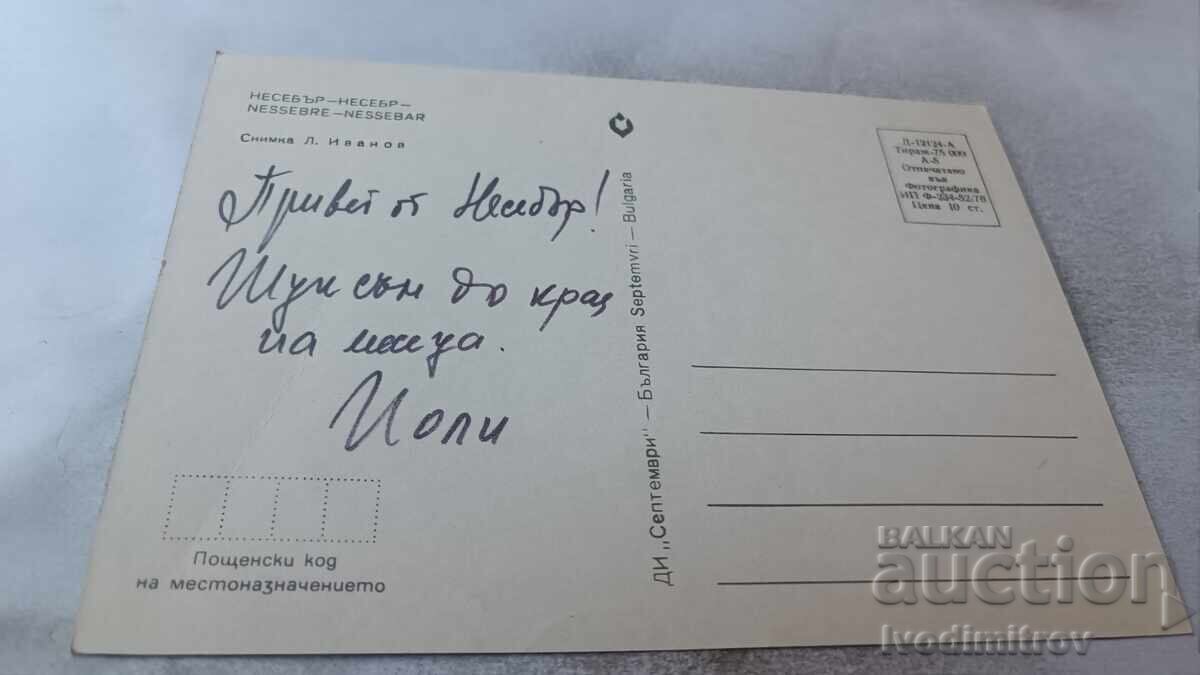 НЕСЕБЪР—НЕСЕБР—
NESSEBRE—NESSEBAR
Снимка Л. Иванов
Привет от Несебър!
Тук съм до края
на месеца.
Поли
Пощенски код
на местоназначението
ДИ „Септември" — България Septemvri — Bulgaria
Д-12124-А
Тираж-75 000
А-8
Отпечатано
във
Фотографика
ИП Ф-234-82/78
Цена 10 ст.
BALKAN
auction
Ivodimitrov